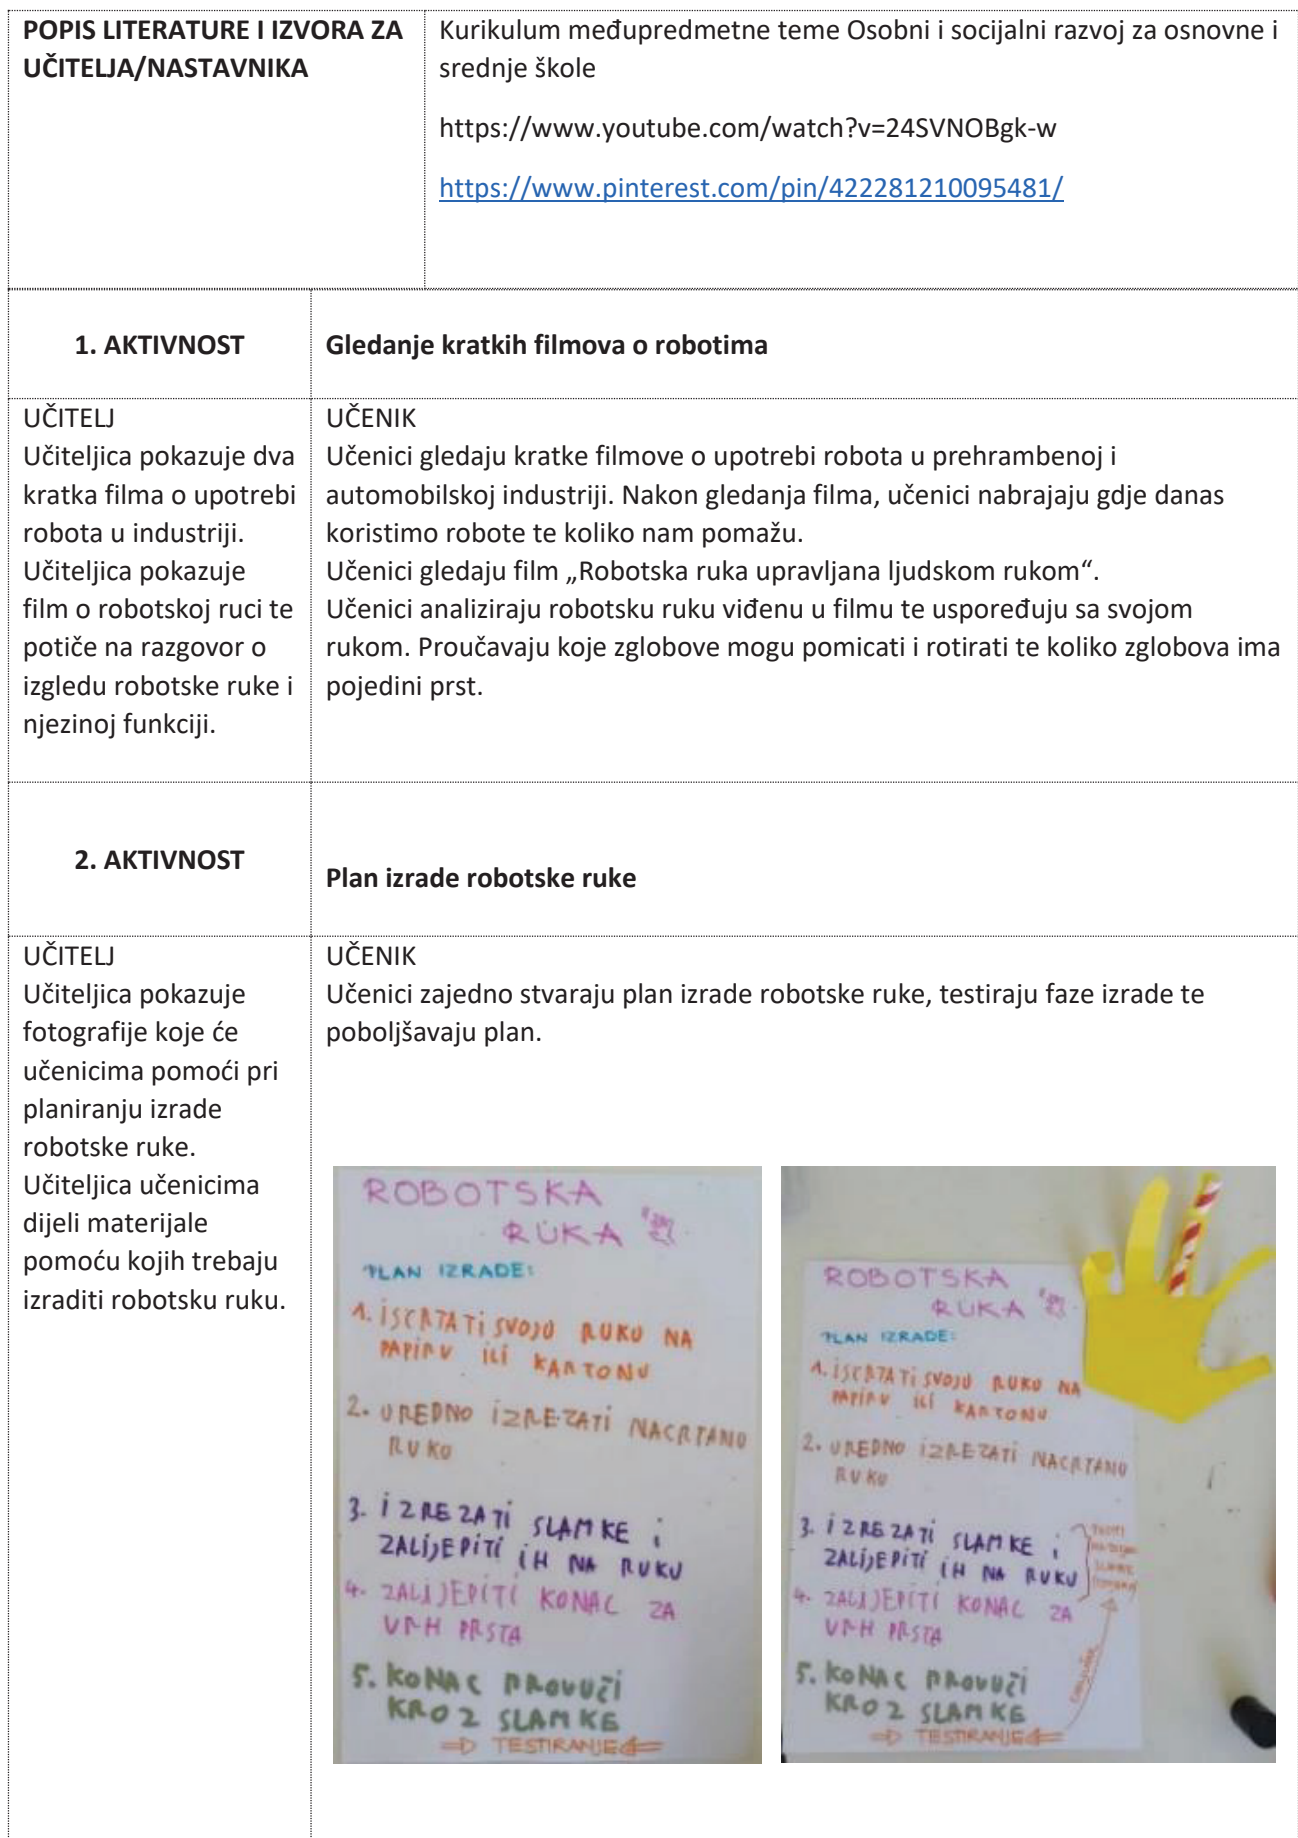 POPIS LITERATURE I IZVORA ZA
UČITELJA/NASTAVNIKA
Kurikulum međupredmetne teme Osobni i socijalni razvoj za osnovne i
srednje škole
https://www.youtube.com/watch?v=24SVNOBgk-w
https://www.pinterest.com/pin/422281210095481/
1. AKTIVNOST
Gledanje kratkih filmova o robotima
UČITELJ
Učiteljica pokazuje dva
kratka filma o upotrebi
robota u industriji.
Učiteljica pokazuje
film o robotskoj ruci te
potiče na razgovor o
izgledu robotske ruke i
njezinoj funkciji.
UČENIK
Učenici gledaju kratke filmove o upotrebi robota u prehrambenoj i
automobilskoj industriji. Nakon gledanja filma, učenici nabrajaju gdje danas
koristimo robote te koliko nam pomažu.
Učenici gledaju film „Robotska ruka upravljana ljudskom rukom“.
Učenici analiziraju robotsku ruku viđenu u filmu te uspoređuju sa svojom
rukom. Proučavaju koje zglobove mogu pomicati i rotirati te koliko zglobova ima
pojedini prst.
2. AKTIVNOST
Plan izrade robotske ruke
UČITELJ
Učiteljica pokazuje
fotografije koje će
učenicima pomoći pri
planiranju izrade
robotske ruke.
Učiteljica učenicima
dijeli materijale
pomoću kojih trebaju
izraditi robotsku ruku.
UČENIK
Učenici zajedno stvaraju plan izrade robotske ruke, testiraju faze izrade te
poboljšavaju plan.
ROBOTSKA
RUKA
PLAN IZRADE:
1. ISCRTATI SVOJU RUKU NA
PAPIRU ILI KARTONU
2. UREDNO IZREZATI NACRTANU
RUKU
3. IZREZATI SLAMKE I
ZALIJEPITI IH NA RUKU
4. ZALIJEPITI KONAC ZA
VRH PRSTA
5. KONAC PROVUĆI
KROZ SLAMKE
TESTIRANJE
ROBOTSKA
RUKA
PLAN IZRADE:
1. ISCRTATI SVOJU RUKU NA
PAPIRU ILI KARTONU
2. UREDNO IZREZATI NACRTANU
RUKU
3. IZREZATI SLAMKE I
ZALIJEPITI IH NA RUKU
4. ZALIJEPITI KONAC ZA
VRH PRSTA
5. KONAC PROVUĆI
KROZ SLAMKE
TESTIRANJE